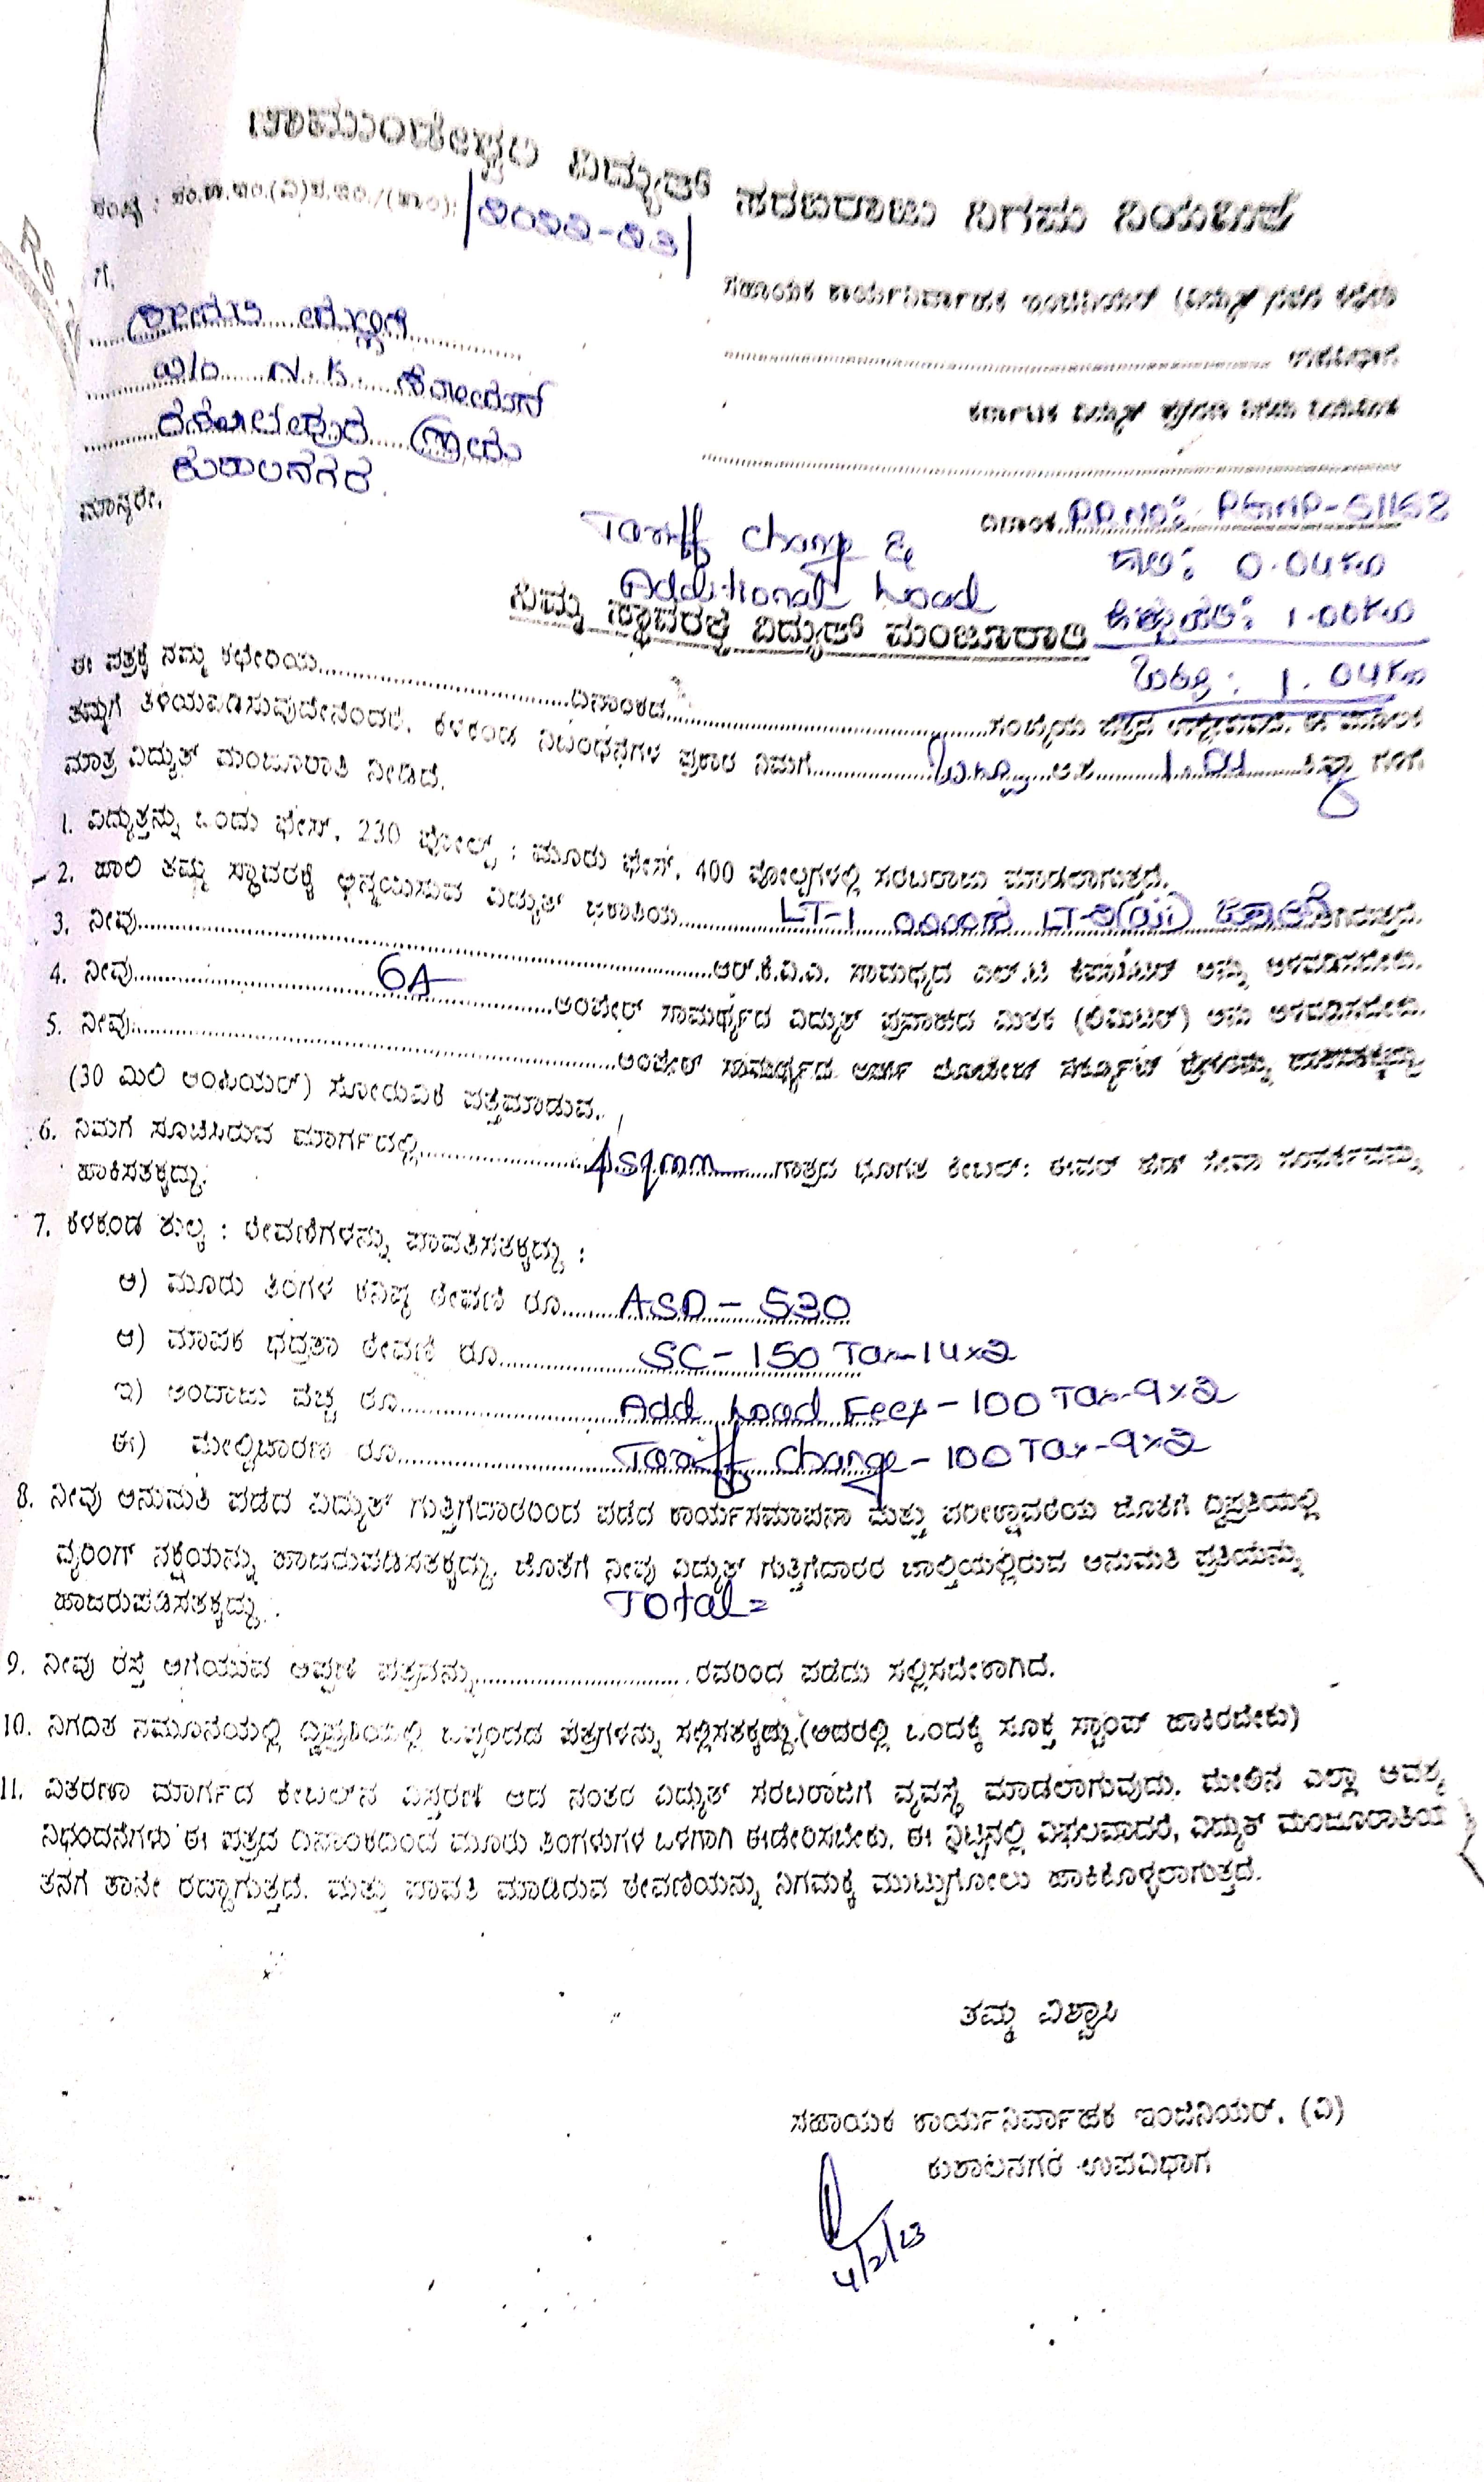 ಚಾಮುಂಡೇಶ್ವರಿ ವಿದ್ಯುತ್ ಸರಬರಾಜು ನಿಗಮ ನಿಯಮಿತ
ಸಂಖ್ಯೆ : ಸ.ಕಾ.ಇಂ.(ವಿ)ಕ.ಇಂ./(ಕಾಂ): /2022-23/
ಗೆ,
ಸಹಾಯಕ ಕಾರ್ಯನಿರ್ವಾಹಕ ಇಂಜಿನಿಯರ್ (ವಿದ್ಯುತ್)ರವರ ಕಛೇರಿ
ಶ್ರೀಮತಿ
ಉಪವಿಭಾಗ
W/O N.K.
ಕರ್ನಾಟಕ ವಿದ್ಯುತ್ ಪ್ರಸರಣ ನಿಗಮ ನಿಯಮಿತ
ಗ್ರಾಮ
ಕುಶಾಲನಗರ.
ಮಾನ್ಯರೇ,
ದಿನಾಂಕ RR NO:
Tariff change &
ಹಾಲಿ: 0.04KW
Additional Load
ಹೆಚ್ಚುವರಿ: 1.00KW
ನಿಮ್ಮ ಸ್ಥಾವರಕ್ಕೆ ವಿದ್ಯುತ್ ಮಂಜೂರಾತಿ
ಒಟ್ಟು: 1.04KW
ಈ ಪತ್ರಕ್ಕೆ ನಮ್ಮ ಕಛೇರಿಯ ದಿನಾಂಕದ ಸಂಖ್ಯೆಯ ಪತ್ರದ ಉಲ್ಲೇಖವಿದೆ. ಈ ಮೂಲಕ
ತಮ್ಮಗೆ ತಿಳಿಯಪಡಿಸುವುದೇನೆಂದರೆ, ಕೆಳಕಂಡ ನಿಬಂಧನೆಗಳ ಪ್ರಕಾರ ನಿಮಗೆ ಒಟ್ಟು ಅ.ಶ 1.04 ಕಿ.ವ್ಯಾ ಗಳಿಗೆ
ಮಾತ್ರ ವಿದ್ಯುತ್ ಮಂಜೂರಾತಿ ನೀಡಿದೆ.
1. ವಿದ್ಯುತ್ತನ್ನು ಒಂದು ಫೇಸ್, 230 ವೋಲ್ಟ್ : ಮೂರು ಫೇಸ್, 400 ವೋಲ್ಟಗಳಲ್ಲಿ ಸರಬರಾಜು ಮಾಡಲಾಗುತ್ತದೆ.
2. ಹಾಲಿ ತಮ್ಮ ಸ್ಥಾವರಕ್ಕೆ ಅನ್ವಯಿಸುವ ವಿದ್ಯುತ್ ಜಕಾತಿಯು LT-1 ರಿಂದ
3. ನೀವು ಆರ್.ಕೆ.ವಿ.ಎ. ಸಾಮಥ್ಯದ ಎಲ್.ಟಿ ಕೆಪಾಸಿಟರ್ ಅನ್ನು ಅಳವಡಿಸಬೇಕು.
4. ನೀವು 6A ಅಂಪೇರ್ ಸಾಮರ್ಥ್ಯದ ವಿದ್ಯುತ್ ಪ್ರವಾಹದ ಮಿತಕ (ಲಿಮಿಟರ್) ಅನು ಅಳವಡಿಸಬೇಕು.
5. ನೀವು ಅಂಪೇರ್ ಸಾಮರ್ಥ್ಯದ ಅರ್ಥ್ ಲೀಕೇಜ್ ಸರ್ಕ್ಯೂಟ್ ಬ್ರೇಕರನ್ನು
(30 ಮಿಲಿ ಅಂಪಿಯರ್) ಸೋರುವಿಕೆ ಪತ್ತೆಮಾಡುವ.
6. ನಿಮಗೆ ಸೂಚಿಸಿರುವ ಮಾರ್ಗದಲ್ಲಿ 4sqmm ಗಾತ್ರದ ಭೂಗತ ಕೇಬಲ್: ಈವರ್ ಹೆಡ್ ಸೇವಾ ಸಂಪರ್ಕವನ್ನು
ಹಾಕಿಸತಕ್ಕದ್ದು.
7. ಕೆಳಕಂಡ ಶುಲ್ಕ : ಠೇವಣಿಗಳನ್ನು ಪಾವತಿಸತಕ್ಕದ್ದು :
ಅ) ಮೂರು ತಿಂಗಳ ಕನಿಷ್ಠ ಠೇವಣಿ ರೂ ASD - 530
ಆ) ಮಾಪಕ ಭದ್ರತಾ ಠೇವಣಿ ರೂ SC - 150 Tax-14x2
ಇ) ಅಂದಾಜು ವೆಚ್ಚ ರೂ Add Load Fees - 100 Tax-9x2
ಈ) ಮೇಲ್ವಿಚಾರಣ ರೂ Tariff change - 100 Tax-9x2
8. ನೀವು ಅನುಮತಿ ಪಡೆದ ವಿದ್ಯುತ್ ಗುತ್ತಿಗೆದಾರರಿಂದ ಪಡೆದ ಕಾರ್ಯಸಮಾಪನಾ ಮತ್ತು ಪರೀಕ್ಷಾವರಿಯ ಜೊತೆಗೆ ದ್ವಿಪ್ರತಿಯಲ್ಲಿ
ವೈರಿಂಗ್ ನಕ್ಷೆಯನ್ನು ಹಾಜರುಪಡಿಸತಕ್ಕದ್ದು. ಜೊತೆಗೆ ನೀವು ವಿದ್ಯುತ್ ಗುತ್ತಿಗೆದಾರರ ಚಾಲ್ತಿಯಲ್ಲಿರುವ ಅನುಮತಿ ಪ್ರತಿಯನ್ನು
ಹಾಜರುಪಡಿಸತಕ್ಕದ್ದು. Total =
9. ನೀವು ರಸ್ತೆ ಅಗೆಯುವ ಅಪ್ಪಣೆ ಪತ್ರವನ್ನು ರವರಿಂದ ಪಡೆದು ಸಲ್ಲಿಸಬೇಕಾಗಿದೆ.
10. ನಿಗದಿತ ನಮೂನೆಯಲ್ಲಿ ದ್ವಿಪ್ರತಿಯಲ್ಲಿ ಒಪ್ಪಂದದ ಪತ್ರಗಳನ್ನು ಸಲ್ಲಿಸತಕ್ಕದ್ದು.(ಅದರಲ್ಲಿ ಒಂದಕ್ಕೆ ಸೂಕ್ತ ಸ್ಟಾಂಪ್ ಹಾಕಿರಬೇಕು)
11. ವಿತರಣಾ ಮಾರ್ಗದ ಕೇಬಲ್‌ನ ವಿಸ್ತರಣೆ ಆದ ನಂತರ ವಿದ್ಯುತ್ ಸರಬರಾಜಿಗೆ ವ್ಯವಸ್ಥೆ ಮಾಡಲಾಗುವುದು. ಮೇಲಿನ ಎಲ್ಲಾ ಅವಶ್ಯ
ನಿಭಂದನೆಗಳು ಈ ಪತ್ರದ ದಿನಾಂಕದಿಂದ ಮೂರು ತಿಂಗಳುಗಳ ಒಳಗಾಗಿ ಈಡೇರಿಸಬೇಕು. ಈ ನಿಟ್ಟಿನಲ್ಲಿ ವಿಫಲವಾದರೆ, ವಿದ್ಯುತ್ ಮಂಜೂರಾತಿಯ
ತನಗೆ ತಾನೇ ರದ್ದಾಗುತ್ತದೆ. ಮತ್ತು ಪಾವತಿ ಮಾಡಿರುವ ಠೇವಣಿಯನ್ನು ನಿಗಮಕ್ಕೆ ಮುಟ್ಟುಗೋಲು ಹಾಕಿಕೊಳ್ಳಲಾಗುತ್ತದೆ.
ತಮ್ಮ ವಿಶ್ವಾಸಿ
ಸಹಾಯಕ ಕಾರ್ಯನಿರ್ವಾಹಕ ಇಂಜಿನಿಯರ್, (ವಿ)
ಕುಶಾಲನಗರ ಉಪವಿಭಾಗ
4/2/23